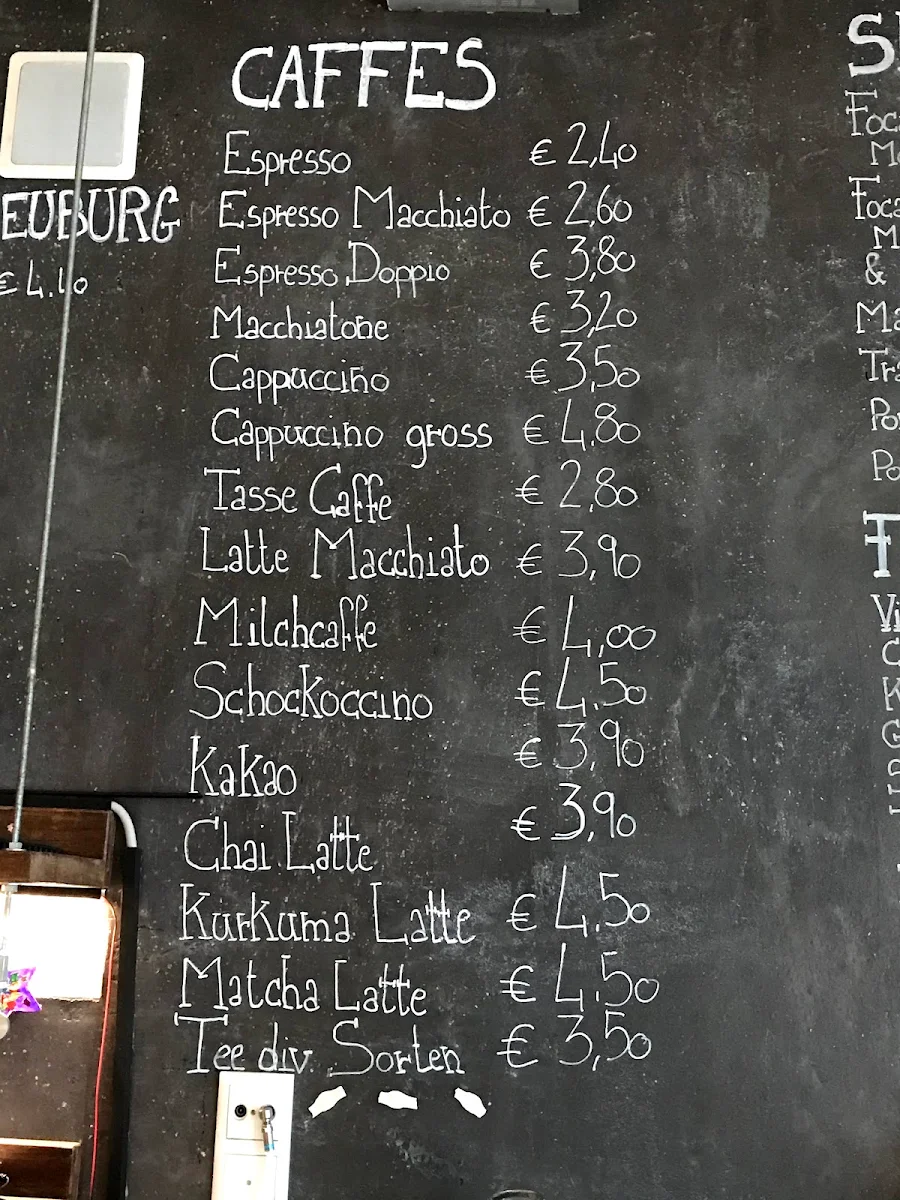 CAFFES
Espresso € 2,40
Espresso Macchiato € 2,60
Espresso Doppio € 3,80
Macchiatone € 3,20
Cappuccino € 3,50
Cappuccino gross € 4,80
Tasse Caffe € 2,80
Latte Macchiato € 3,90
Milchcaffe € 4,00
Schockoccino € 4.50
Kakao € 3,90
Chai Latte € 3,90
Kurkuma Latte € 4.50
Matcha Latte € 4.50
Tee div. Sorten € 3,50
EUBURG
€ 4.10
&